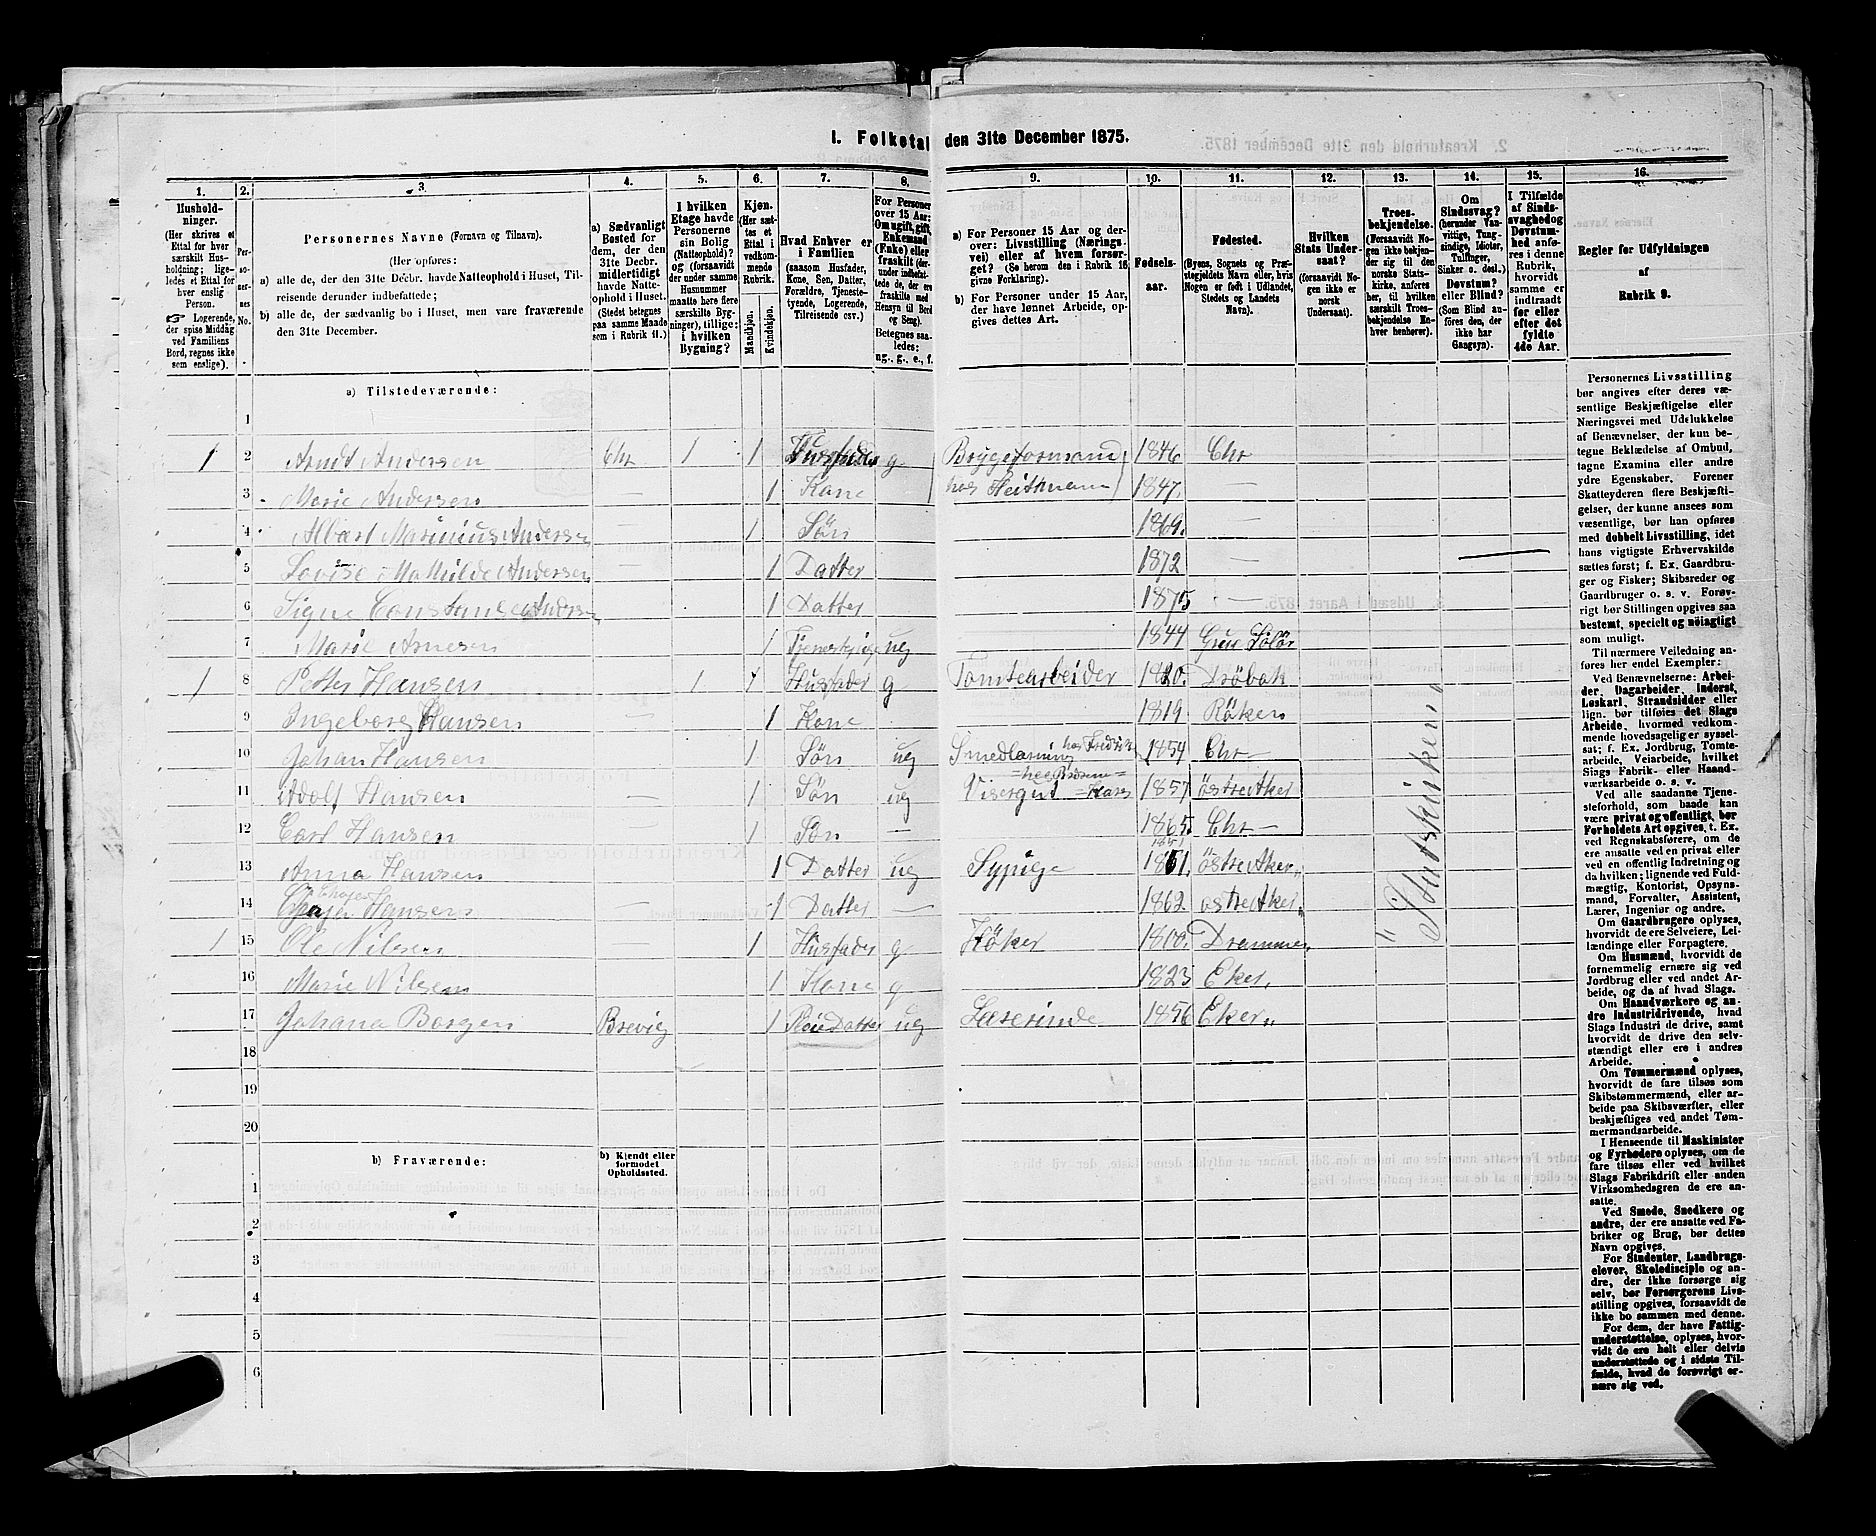 I. Folketal den 31te December 1875.
1. 2. 3. 4. 5. 6. 7. 8. 9. 10. 11. 12. 13. 14. 15. 16.
Husholdninger. (Her skrives et Ettal for hver særskilt Husholdning; ligeledes et Ettal for hver enslig Person. ☞ Logerende, der spise Middag ved Familiens Bord, regnes ikke som enslige).
Personernes No.
Personernes Navne (Fornavn og Tilnavn).
(Her opføres:
a) alle de, der den 31te Decbr. havde Natteophold i Huset, Tilreisende derunder indbefattede;
b) alle de, der sædvanlig bo i Huset, men vare fraværende den 31te December.
a) Sædvanligt Bosted for dem, der den 31te Decbr. midlertidigt havde Natteophold i Huset. (Stedet betegnes paa samme Maade som i Rubrik 11.)
I hvilken Etage havde Personerne sin Bolig (Natteophold)? og (forsaavidt der under samme Husnummer maatte høre flere særskilte Bygninger), tillige: i hvilken Bygning?
Kjøn. (Her sættes et Ettal i vedkommende Rubrik.
Mandkjøn. Kvindekjøn.
Hvad Enhver er i Familien (saasom Husfader, Kone, Søn, Datter, Forældre, Tjenestetyende, Logerende, Tilreisende csv.)
For Personer over 15 Aar: Om ugift, gift, Enkemand (Enke) eller fraskilt (derunder indbefattede de, der ere fraskilte med Hensyn til Bord og Seng). Betegnes saaledes: ug., g., e., f.
a) For Personer 15 Aar og derover: Livsstilling (Næringsvei) eller af hvem forsørget? (Se herom den i Rubrik 16 givne Forklaring).
b) For Personer under 15 Aar, der have lønnet Arbeide, opgives dettes Art.
Fødselsaar.
Fødested. (Byens, Sognets og Præstegjeldets Navn eller, hvis Nogen er født i Udlandet, Stedets og Landets Navn).
Hvilken Stats Undersaat? (forsaavidt Nogen ikke er norsk Undersaat).
Troesbekjendelse. (Forsaavidt Nogen ikke bekjender sig til den norske Statskirke, anføres her, til hvilken særskilt Troesbekjendelse Enhver henhører).
Om Sindssvag? (herunder Vanvittige, Tungsindige, Idioter, Tullinger, Sinker o. desl.) Døvstum? eller Blind? (Som Blind anføres den, der ikke har Gangsyn).
I Tilfælde af Sindssvaghed og Døvstumhed anføres i denne Rubrik, hvorvidt samme er indtraadt før eller efter det fyldte 4de Aar.
Regler for Udfyldningen af Rubrik 9.
a) Tilstedeværende:
1
1 2 Arndt Andersen Chr 1 1 Husfader g Bryggeformand 1846 Chr
3 Marie Andersen — 1 Kone hos Heitmann 1847. —
4 Albart Marinius Andersen — 1 Søn 1869. —
5 Lovise Mathilde Andersen — 1 Datter 1872 —
6 Signe Constanse Andersen 1 Datter 1875 —
7 Marie Arnesen 1 Tjenestepige ug 1844 Grue Solör
1 8 Petter Hansen 1 1 Husfader g Tomtearbeider 1820. Dröbak
9 Ingeborg Hansen — 1 Kone 1819 Röken
10 Johan Hansen — 1 Søn ug Smedlærning hos Fredrik 1854 Chr
11 Adolf Hansen — 1 Søn ug Visergut 1857 östre Aker
12 Carl Hansen — 1 Søn — 1865. Chr —
13 Anna Hansen 1 Datter ug Sypige 1851 1851. östre Aker
14 Hansen — 1 Datter — 1862 östre Aker
1 15 Ole Nilsen — 1 Husfader g Höker 1800. Drammen
16 Marie Nilsen 1 Kone g 1823 Eker.
17 Johana Borgen Brevig 1 Pleie Datter ug Læserinde 1856 Eker
18
19
20
Statskirken
b) Fraværende:
b) Kjendt eller formodet Opholdssted.
1
2
3
4
5
6
Personernes Livsstilling bør angives efter deres væsentlige Beskjæftigelse eller Næringsvei med Udelukkelse af Benævnelser, der kun betegne Beklædelse af Ombud, tagne Examina eller andre ydre Egenskaber. Forener Skatteyderen flere Beskjæftigelser, der kunne ansees som væsentlige, bør han opføres med dobbelt Livsstilling, idet hans vigtigste Erhvervskilde sættes først; f. Ex. Gaardbruger og Fisker; Skibsreder og Gaardbruger o. s. v. Forøvrigt bør Stillingen opgives saa bestemt, specielt og nöiagtigt som muligt.
Til nærmere Veiledning anføres her endel Exempler:
Ved Benævnelserne: Arbeider, Dagarbeider, Inderst, Løskarl, Strandsidder eller lign. bør tilføies det Slags Arbeide, hvormed vedkommende hovedsagelig er sysselsat; f. Ex. Jordbrug, Tomtearbeide, Veiarbeide, hvilket Slags Fabrik- eller Haandværksarbeide o. s. v.
Ved alle saadanne Tjenesteforhold, som baade kan være privat og offentligt, bør Forholdets Art opgives, t. Ex. ved Regnskabsførere, om de ere ansatte ved en privat eller ved en offentlig Indretning og da hvilken; lignende ved Fuldmægtig, Kontorist, Opsynsmand, Forvalter, Assistent, Lærer, Ingeniør og andre.
Om Gaardbrugere oplyses, hvorvidt de ere Selveiere, Leilændinge eller Forpagtere.
Om Husmænd, hvorvidt de fornemmelig ernære sig ved Jordbrug eller ved andet Arbeide, og da af hvad Slags.
Om Haandværkere og andre Industridrivende, hvad Slags Industri de drive, samt hvorvidt de drive den selvstændigt eller ere i andres Arbeide.
Om Tømmermænd oplyses, hvorvidt de fare tilsøs som Skibstømmermænd, eller arbeide paa Skibsværfter, eller beskjæftiges ved andet Tømmermandsarbeide.
I Henseende til Maskinister og Fyrbødere oplyses, om de fare tilsøs eller ved hvilket Slags Fabrikdrift eller anden Virksomhedsgren de ere ansatte.
Ved Smede, Snedkere og andre, der ere ansatte ved Fabriker og Brug, bør dettes Navn opgives.
For Studenter, Landbrugselever, Skoledisciple og andre, der ikke forsørge sig selv, bør Forsørgerens Livsstilling opgives, forsaavidt de ikke bo sammen med denne.
For dem, der have Fattigunderstøttelse, oplyses, hvorvidt de ere helt eller delvis understøttede og i sidste Tilfælde, hvad de forøvrigt ernære sig ved.